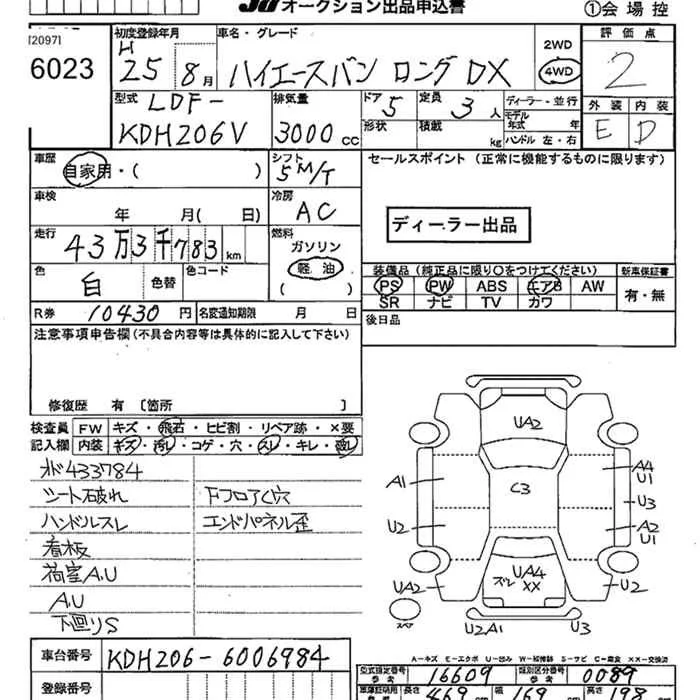 JU オークション出品申込書 ①会場控
[2097]
6023
初度登録年月 車名・グレード 2WD 評価点
H
25 8月 ハイエースバン ロング DX 4WD 2
型式 排気量 ドア 定員 ディーラー・並行 外装 内装
LDF-
KDH206V 3000cc 5 3人 E D
形状 積載 kg
モデル年式 年
ハンドル 左・右
車歴 シフト セールスポイント (正常に機能するものに限ります)
自家用・( ) 5 M/T
車検 冷房
年 月( 日) AC
ディーラー出品
走行 燃料
43万3千783km ガソリン
軽油
( )
色 色替 色コード
白
装備品(純正品に限り〇をつけてください) 新車保証書
PS PW ABS エアB AW 有・無
SR ナビ TV カワ
R券 10430円 名変通知期限 月 日
後日品
注意事項申告欄(不具合内容等は具体的に記入して下さい)
修復歴 有 [箇所 ]
検査員 FW キズ・飛石・ヒビ割・リペア跡・×要
記入欄 内装 キズ・汚レ・コゲ・穴・スレ・キレ・
433784
シート破れ FフロアC穴
ハンドルスレ エンドパネル歪
看板
荷室A.U
A.U
下廻りS
UA2
A1 C3 A4
U1
U3
U2 A2
U1
UA2 ズレ UA4
XX
U2
スペア U2A1 U3
A-キズ E-エクボ U-凹み W-補修跡 S-サビ C-腐食 XX-交換済
車台番号 KDH206-6006984
型式指定番号 参考 16609 類別区分番号 参考 0089
登録番号
長さ 469cm 幅 169cm 高さ 198cm